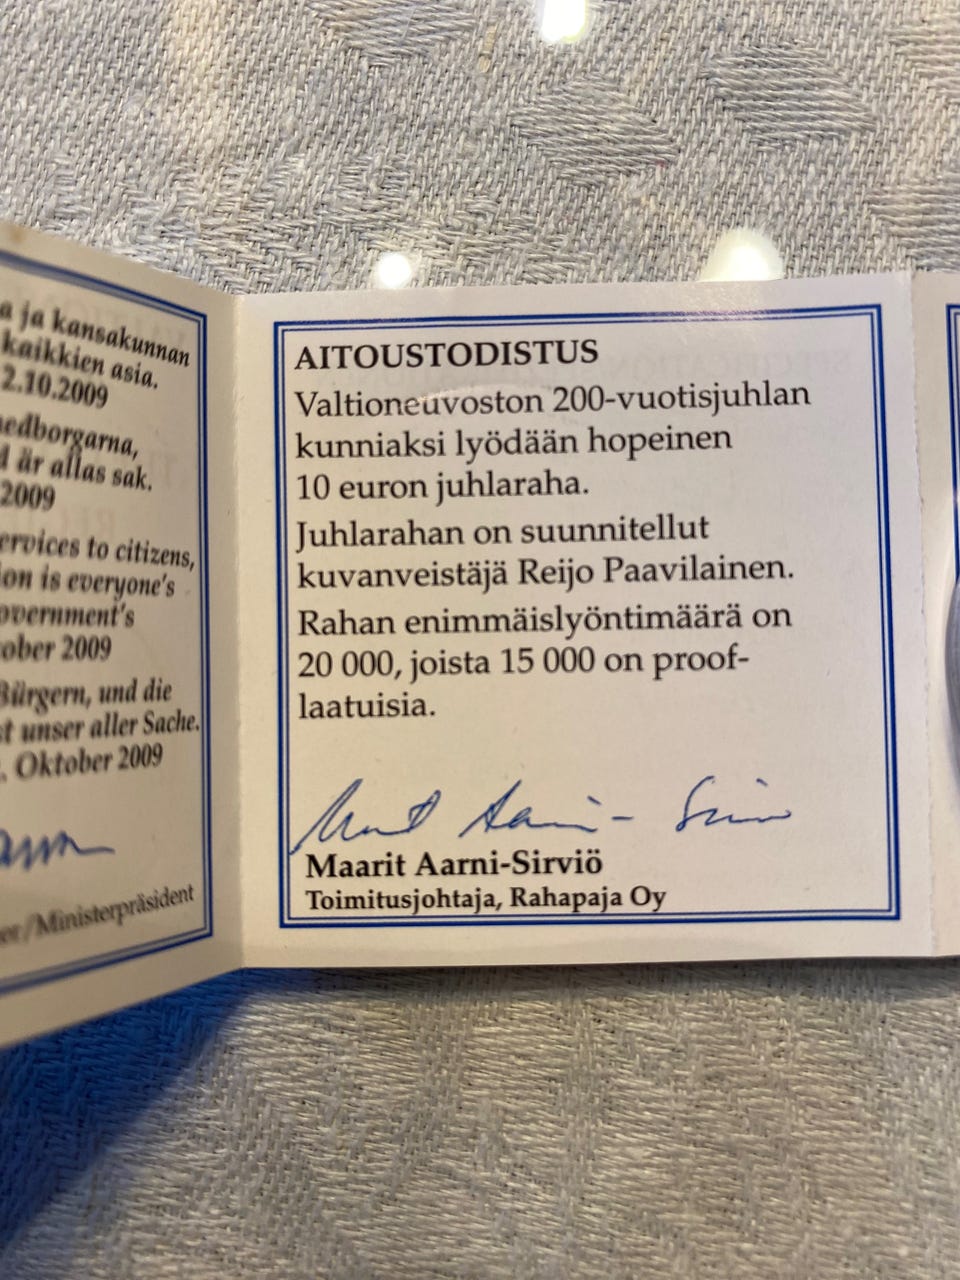 a ja kansakunnan
kaikkien asia.
2.10.2009
medborgarna,
är allas sak.
2009
ervices to citizens,
ion is everyone's
overnment's
ober 2009
Bürgern, und die
t unser aller Sache.
. Oktober 2009
er/Ministerpräsident
AITOUSTODISTUS
Valtioneuvoston 200-vuotisjuhlan
kunniaksi lyödään hopeinen
10 euron juhlaraha.
Juhlarahan on suunnitellut
kuvanveistäjä Reijo Paavilainen.
Rahan enimmäislyöntimäärä on
20 000, joista 15 000 on proof-
laatuisia.
Maarit Aarni-Sirviö
Toimitusjohtaja, Rahapaja Oy